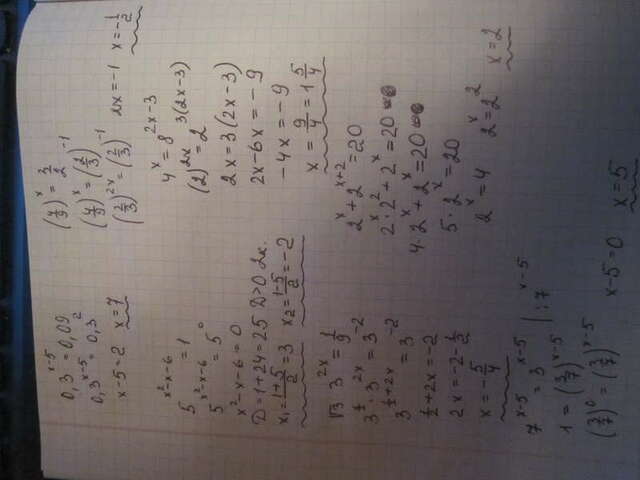 0,3^(x-5) = 0,09
0,3^(x-5) = 0,3^2
x-5=2 x=7
(4/9)^x = 3/2
(4/9)^x = (2/3)^(-1)
(2/3)^(2x) = (2/3)^(-1) 2x=-1 x=-1/2
5^(x²-x-6) = 1
5^(x²-x-6) = 5^0
x²-x-6=0
D=1+24=25 D>0 2к.
x₁=(1+5)/2=3 x₂=(1-5)/2=-2
4^x = 8^(2x-3)
(2)^(2x) = 2^(3(2x-3))
2x=3(2x-3)
2x-6x=-9
-4x=-9
x = 9/4 = 1 5/4
√3 3^(2x) = 1/9
3^(1/2) · 3^(2x) = 3^(-2)
3^(1/2+2x) = 3^(-2)
1/2+2x=-2
2x=-2-1/2
x=-5/4
2^x + 2^(x+2) = 20
2^x · 2^2 + 2^x = 20
4·2^x + 2^x = 20
5·2^x = 20
2^x = 4 2^x = 2^2 x=2
7^(x-5) = 3^(x-5) | :7^(x-5)
1 = (3/7)^(x-5)
(3/7)^0 = (3/7)^(x-5) x-5=0 x=5